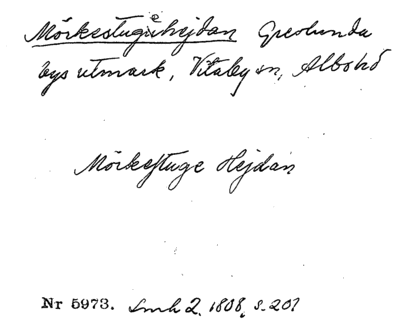 Mörkestugehejdan Greslunda
bys utmark, Vitaby sn, Albo hd
Mörkestuge Hejdan
Nr 5973. Lmh 2. 1808, s. 201